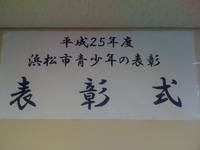 平成25年度
浜松市青少年の表彰
表彰式